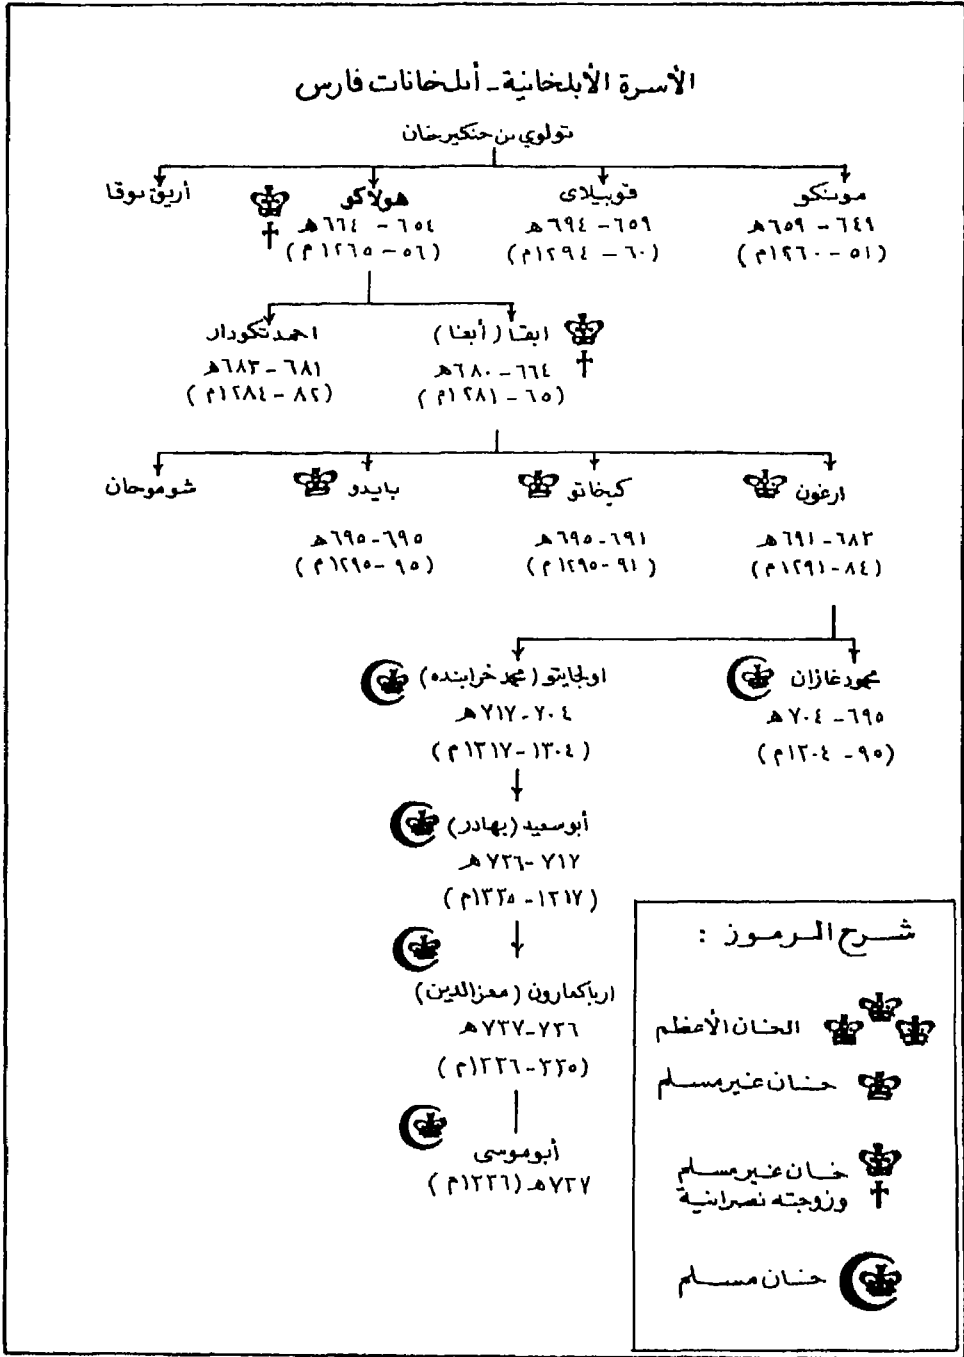 الأسرة الأيلخانية - أيلخانات فارس
تولوي بن جنكيزخان
مونكو
٦٤٩ - ٦٥٩هـ
(٥١ - ١٢٦٠م)
قوبيلاى
٦٥٩ - ٦٩٤هـ
(٦٠ - ١٢٩٤م)
هولاكو
٦٥٤ - ٦٦٤هـ
(٥٦ - ١٢٦٥م)
أريق بوقا
ابقا (أبغا)
٦٦٤ - ٦٨٠هـ
(٦٥ - ١٢٨١م)
احمد تكودار
٦٨١ - ٦٨٣هـ
(٨٢ - ١٢٨٤م)
ارغون
٦٨٣ - ٦٩١هـ
(٨٤ - ١٢٩١م)
كيخاتو
٦٩١ - ٦٩٥هـ
(٩١ - ١٢٩٥م)
بايدو
٦٩٥ - ٦٩٥هـ
(٩٥ - ١٢٩٥م)
شوموخان
محمود غازان
٦٩٥ - ٧٠٤هـ
(٩٥ - ١٣٠٤م)
اولجايتو (محمد خرابنده)
٧٠٤ - ٧١٧هـ
(١٣٠٤ - ١٣١٧م)
أبو سعيد (بهادر)
٧١٧ - ٧٣٦هـ
(١٣١٧ - ١٣٣٥م)
ارباكمارون (معز الدين)
٧٣٦ - ٧٣٧هـ
(٣٣٥ - ١٣٣٦م)
أبو موسى
٧٣٧هـ (١٣٣٦م)
شرح الرموز :
الخان الأعظم
خان غير مسلم
خان غير مسلم
وزوجته نصرانية
خان مسلم